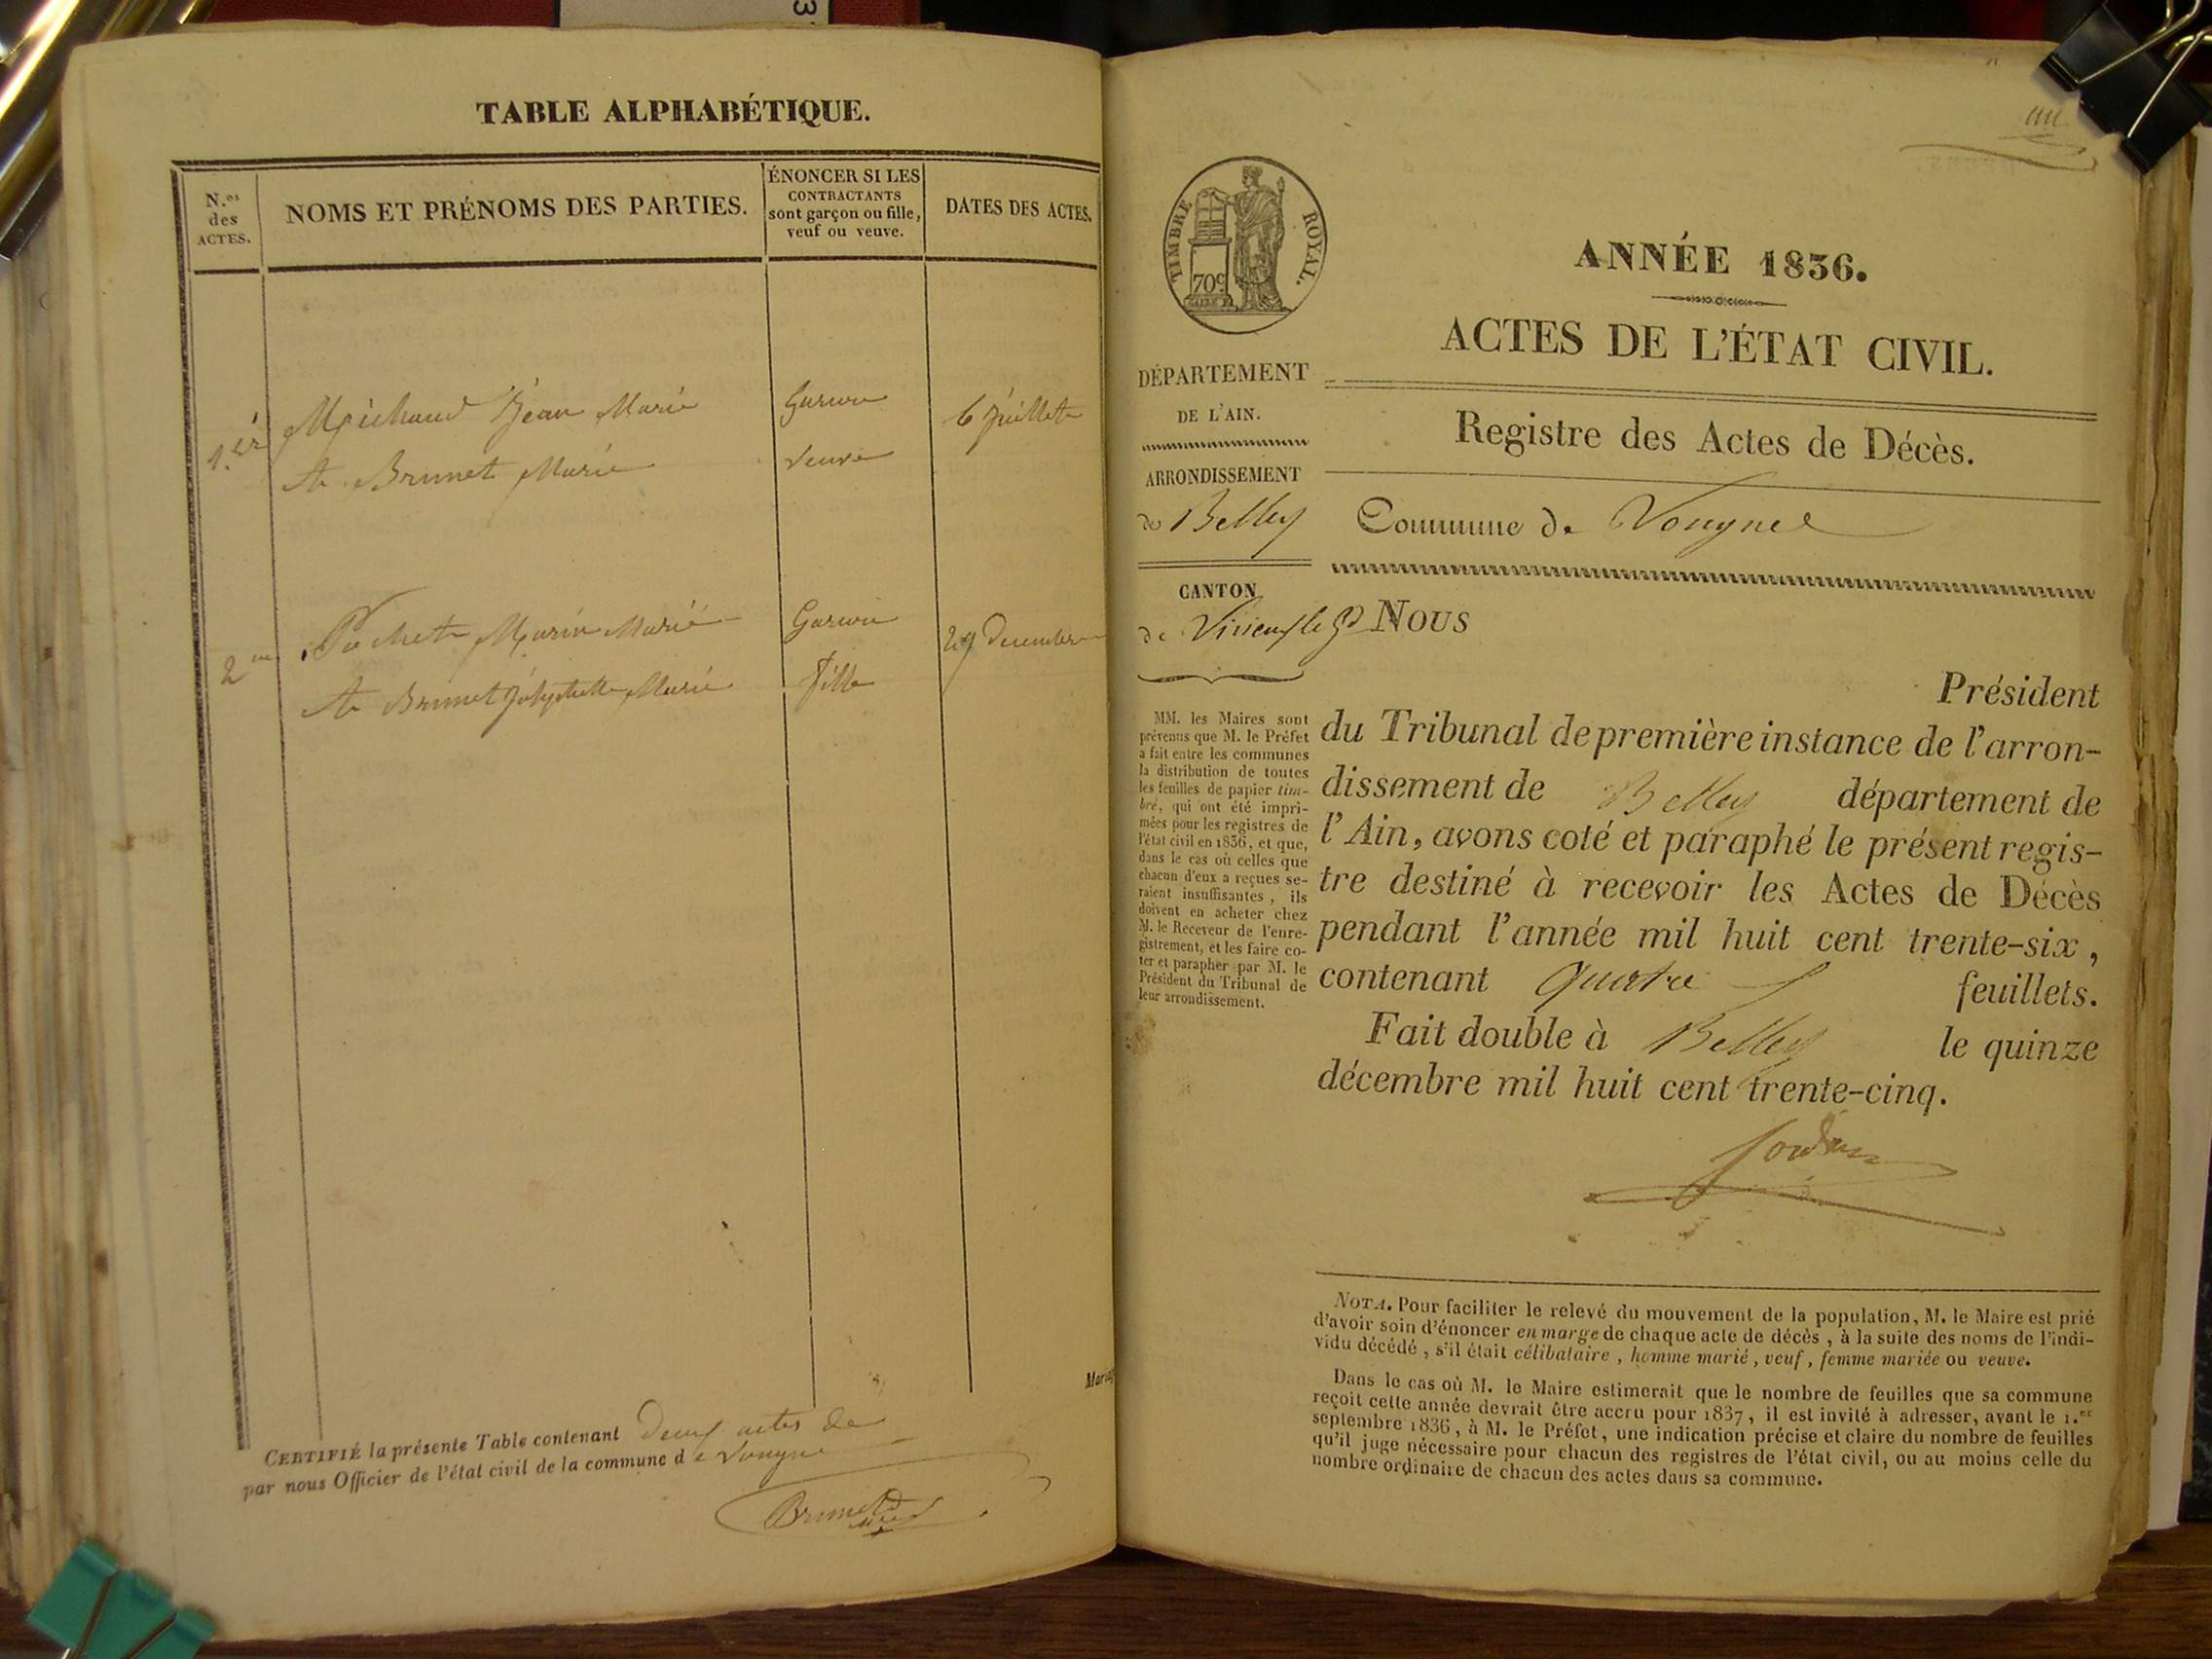 TABLE ALPHABÉTIQUE.
N.os des ACTES.
NOMS ET PRÉNOMS DES PARTIES.
ÉNONCER SI LES
CONTRACTANTS
sont garçon ou fille,
veuf ou veuve.
DATES DES ACTES.
1.er Michaud Jean Marie Garson 6 Juillet
Et Brunet Marie veuve
2me Pochet Marin Marie Garson 29 Decembre
Et Brunet Marie fille
CERTIFIÉ la présente Table contenant Deux actes de
par nous Officier de l'état civil de la commune de Vougne
Brunet
TIMBRE ROYAL.
70c
ANNÉE 1836.
ACTES DE L'ÉTAT CIVIL.
Registre des Actes de Décès.
Commune de Vougne
DÉPARTEMENT
DE L'AIN.
ARRONDISSEMENT
de Belley
CANTON
de Virieu le Gd
MM. les Maires sont
prévenus que M. le Préfet
a fait entre les communes
la distribution de toutes
les feuilles de papier tim-
bré, qui ont été impri-
mées pour les registres de
l'état civil en 1836, et que,
dans le cas où celles que
chacun d'eux a reçues se-
raient insuffisantes, ils
doivent en acheter chez
M. le Receveur de l'enre-
gistrement, et les faire co-
ter et parapher par M. le
Président du Tribunal de
leur arrondissement.
NOUS
Président
du Tribunal de première instance de l'arron-
dissement de Belley département de
l'Ain, avons coté et paraphé le présent regis-
tre destiné à recevoir les Actes de Décès
pendant l'année mil huit cent trente-six,
contenant quatre feuillets.
Fait double à Belley le quinze
décembre mil huit cent trente-cinq.
NOTA. Pour faciliter le relevé du mouvement de la population, M. le Maire est prié
d'avoir soin d'énoncer en marge de chaque acte de décès, à la suite des noms de l'indi-
vidu décédé, s'il était célibataire, homme marié, veuf, femme mariée ou veuve.
Dans le cas où M. le Maire estimerait que le nombre de feuilles que sa commune
reçoit cette année devrait être accru pour 1837, il est invité à adresser, avant le 1.er
septembre 1836, à M. le Préfet, une indication précise et claire du nombre de feuilles
qu'il juge nécessaire pour chacun des registres de l'état civil, ou au moins celle du
nombre ordinaire de chacun des actes dans sa commune.